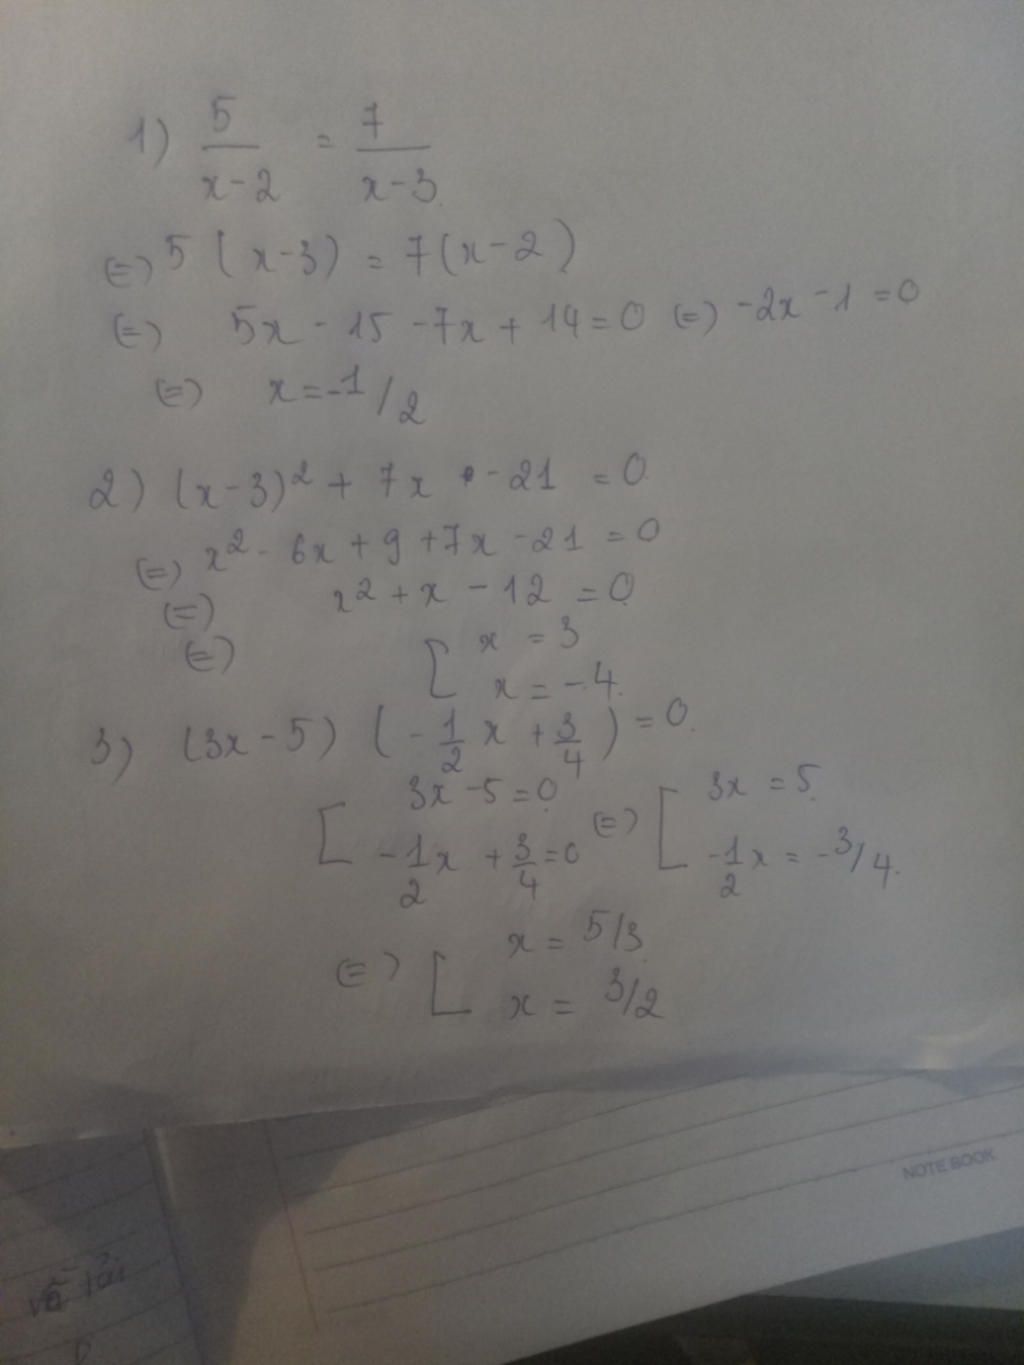 1) 5/(x-2) = 7/(x-3)
(=) 5(x-3) = 7(x-2)
(=) 5x - 15 - 7x + 14 = 0 (=) -2x - 1 = 0
(=) x = -1/2
2) (x-3)² + 7x - 21 = 0
(=) x² - 6x + 9 + 7x - 21 = 0
(=) x² + x - 12 = 0
(=) [ x = 3
x = -4.
3) (3x-5) (-1/2 x + 3/4) = 0.
[ 3x - 5 = 0 (=) [ 3x = 5.
-1/2 x + 3/4 = 0 -1/2 x = -3/4.
(=) [ x = 5/3.
x = 3/2
NOTE BOOK